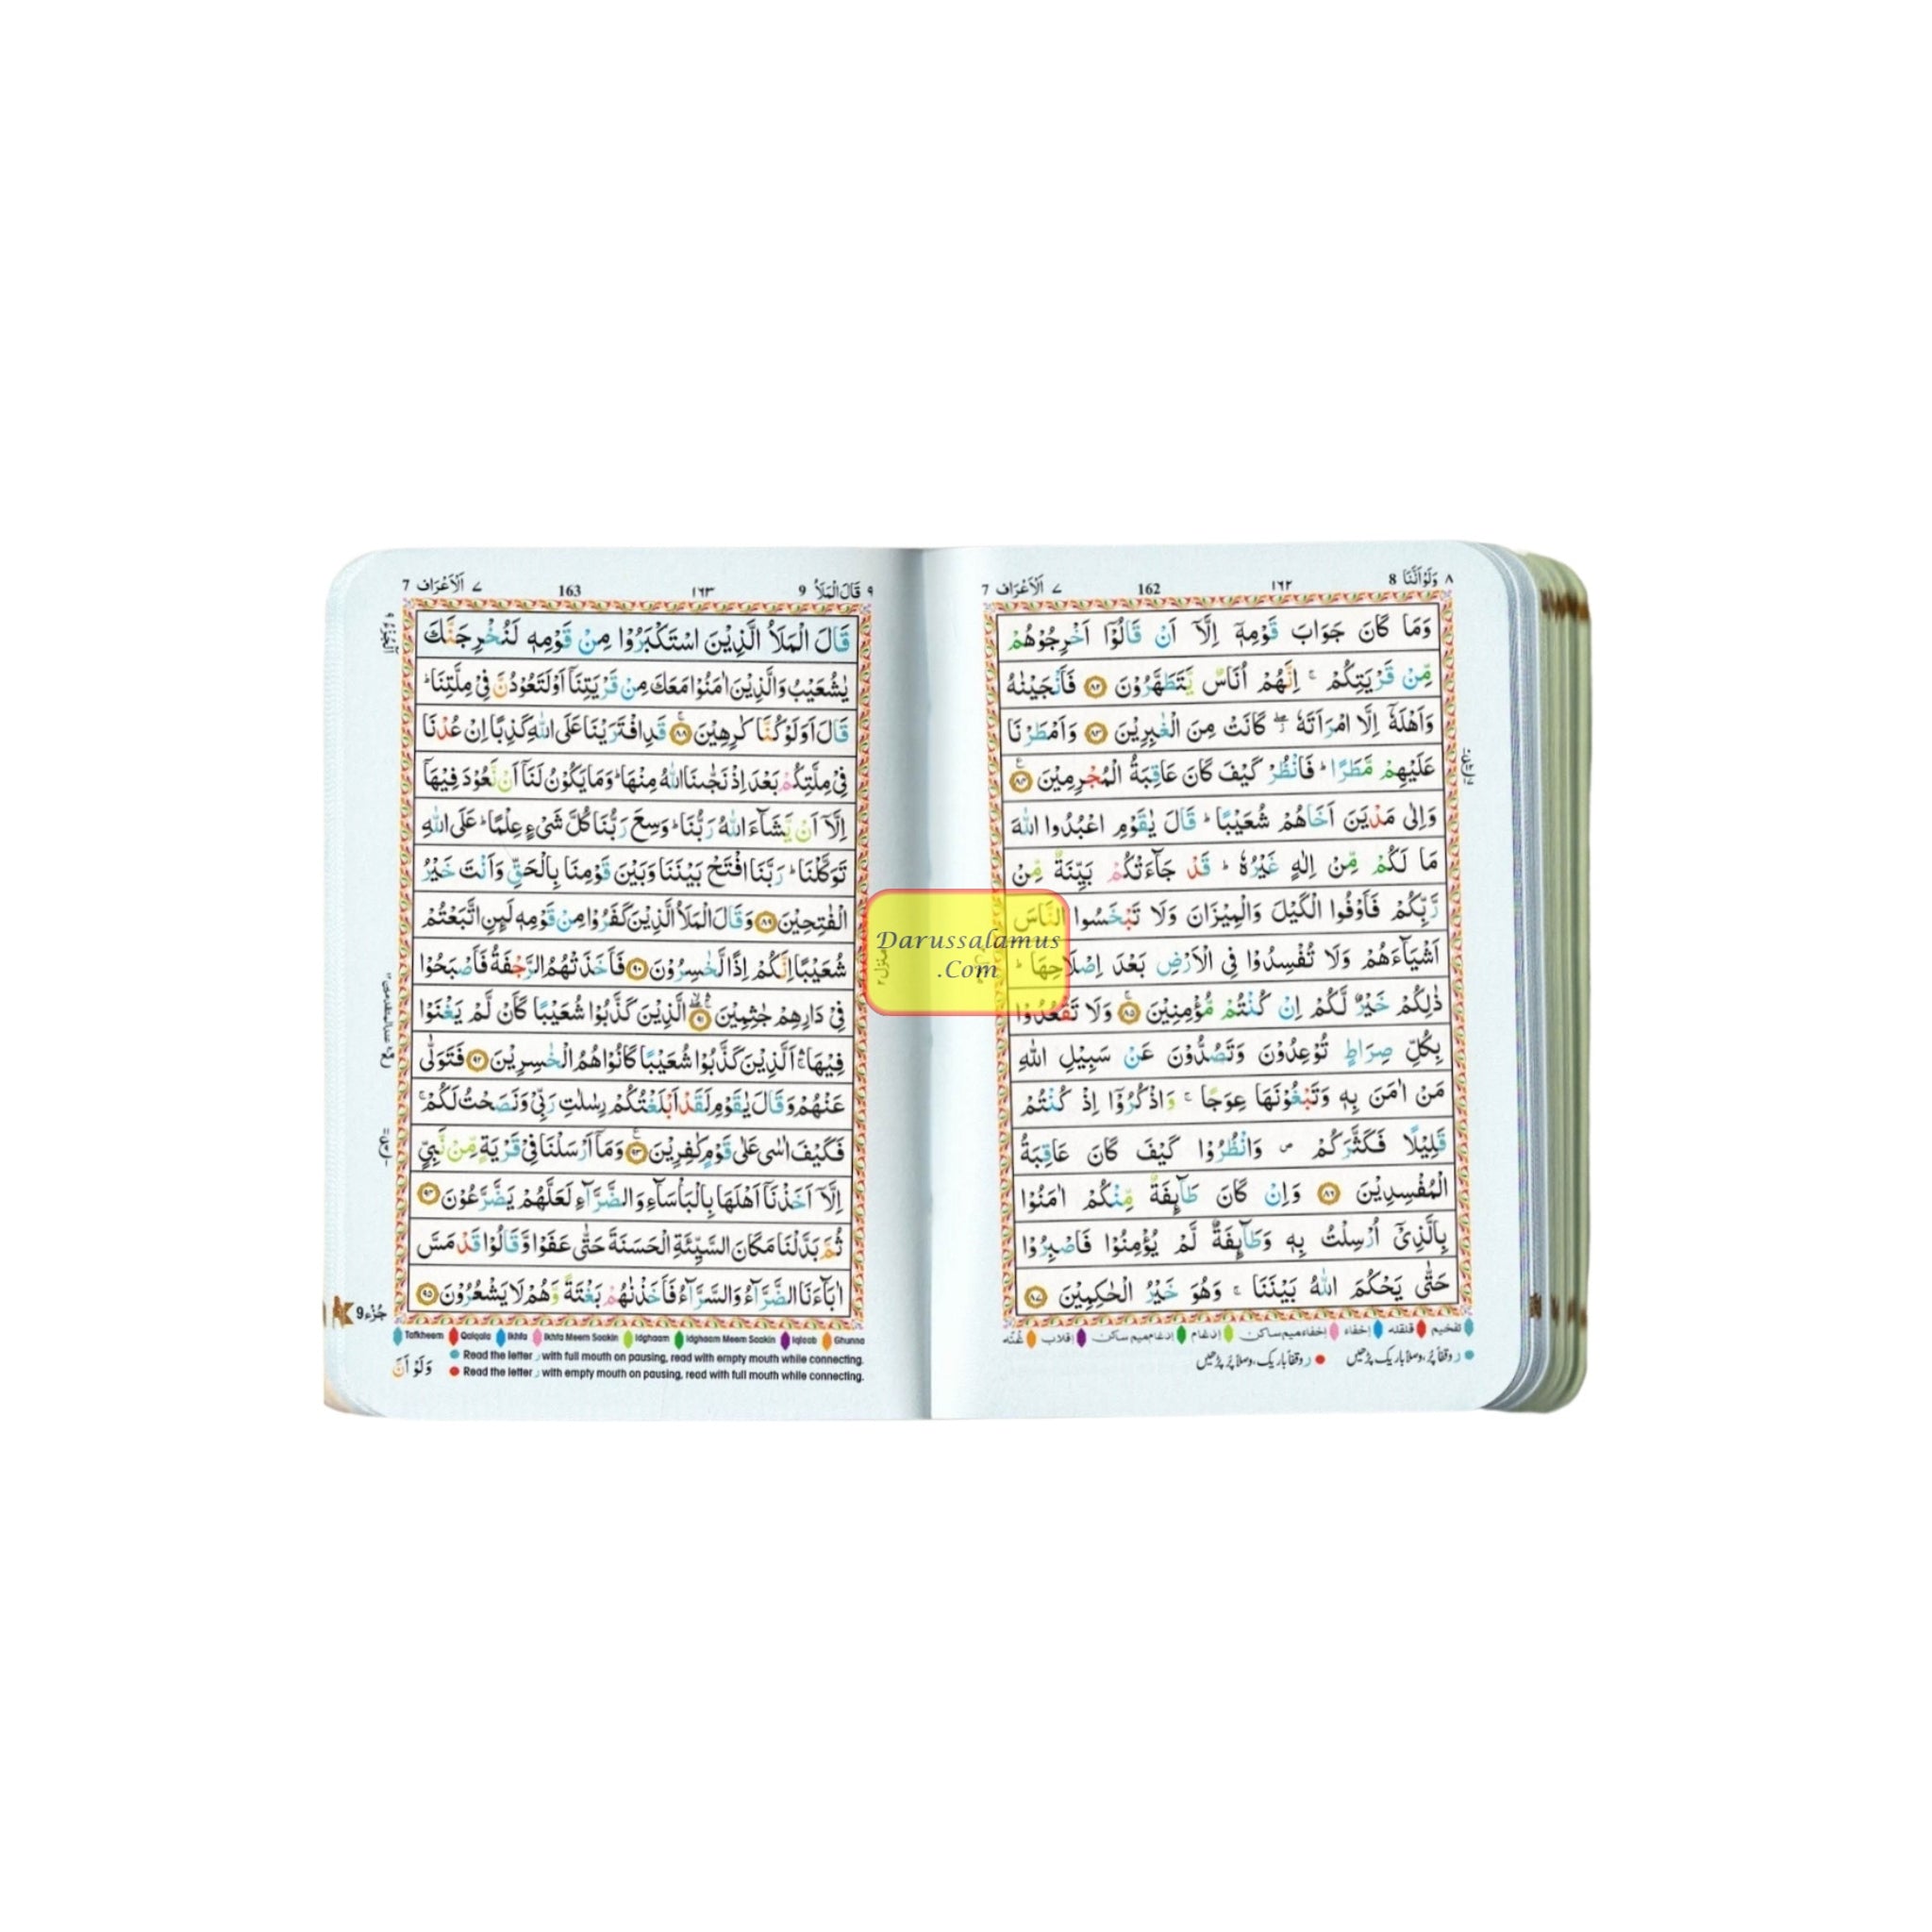 ٨ وَلَوْاَنَّنَا 8
١٦٢
162
٧ اَلْاَعْرَاف 7
وَمَا كَانَ جَوَابَ قَوْمِهٖۤ اِلَّاۤ اَنْ قَالُوْۤا اَخْرِجُوْهُمْ
مِّنْ قَرْيَتِكُمْ ۚ اِنَّهُمْ اُنَاسٌ يَّتَطَهَّرُوْنَ ٨٢ فَاَنْجَيْنٰهُ
وَاَهْلَهٗۤ اِلَّا امْرَاَتَهٗ ۖ كَانَتْ مِنَ الْغٰبِرِيْنَ ٨٣ وَاَمْطَرْنَا
عَلَيْهِمْ مَّطَرًا ؕ فَانْظُرْ كَيْفَ كَانَ عَاقِبَةُ الْمُجْرِمِيْنَ ٨٤
وَاِلٰى مَدْيَنَ اَخَاهُمْ شُعَيْبًا ؕ قَالَ يٰقَوْمِ اعْبُدُوا اللّٰهَ
مَا لَكُمْ مِّنْ اِلٰهٍ غَيْرُهٗ ؕ قَدْ جَآءَتْكُمْ بَيِّنَةٌ مِّنْ
رَّبِّكُمْ فَاَوْفُوا الْكَيْلَ وَالْمِيْزَانَ وَلَا تَبْخَسُوا النَّاسَ
اَشْيَآءَهُمْ وَلَا تُفْسِدُوْا فِى الْاَرْضِ بَعْدَ اِصْلَاحِهَا ؕ
ذٰلِكُمْ خَيْرٌ لَّكُمْ اِنْ كُنْتُمْ مُّؤْمِنِيْنَ ٨٥ وَلَا تَقْعُدُوْا
بِكُلِّ صِرَاطٍ تُوْعِدُوْنَ وَتَصُدُّوْنَ عَنْ سَبِيْلِ اللّٰهِ
مَنْ اٰمَنَ بِهٖ وَتَبْغُوْنَهَا عِوَجًا ۚ وَاذْكُرُوْۤا اِذْ كُنْتُمْ
قَلِيْلًا فَكَثَّرَكُمْ ۪ وَانْظُرُوْا كَيْفَ كَانَ عَاقِبَةُ
الْمُفْسِدِيْنَ ٨٦ وَاِنْ كَانَ طَآئِفَةٌ مِّنْكُمْ اٰمَنُوْا
بِالَّذِىْۤ اُرْسِلْتُ بِهٖ وَطَآئِفَةٌ لَّمْ يُؤْمِنُوْا فَاصْبِرُوْا
حَتّٰى يَحْكُمَ اللّٰهُ بَيْنَنَا ۚ وَهُوَ خَيْرُ الْحٰكِمِيْنَ ٨٧
تفخيم قلقله إخفاء إخفاءميم ساكن إدغام إدغام ميم ساكن إقلاب غُنّه
ر وقفاً پُر، وصلاً باریک پڑھیں ر وقفاً باریک، وصلاً پُر پڑھیں
٩ قَالَ الْمَلَاُ 9
١٦٣
163
٧ اَلْاَعْرَاف 7
قَالَ الْمَلَاُ الَّذِيْنَ اسْتَكْبَرُوْا مِنْ قَوْمِهٖ لَنُخْرِجَنَّكَ
يٰشُعَيْبُ وَالَّذِيْنَ اٰمَنُوْا مَعَكَ مِنْ قَرْيَتِنَاۤ اَوْ لَتَعُوْدُنَّ فِىْ مِلَّتِنَا ؕ
قَالَ اَوَلَوْ كُنَّا كٰرِهِيْنَ ٨٨ قَدِ افْتَرَيْنَا عَلَى اللّٰهِ كَذِبًا اِنْ عُدْنَا
فِىْ مِلَّتِكُمْ بَعْدَ اِذْ نَجّٰىنَا اللّٰهُ مِنْهَا ؕ وَمَا يَكُوْنُ لَنَاۤ اَنْ نَّعُوْدَ فِيْهَاۤ
اِلَّاۤ اَنْ يَّشَآءَ اللّٰهُ رَبُّنَا ؕ وَسِعَ رَبُّنَا كُلَّ شَىْءٍ عِلْمًا ؕ عَلَى اللّٰهِ
تَوَكَّلْنَا ؕ رَبَّنَا افْتَحْ بَيْنَنَا وَبَيْنَ قَوْمِنَا بِالْحَقِّ وَاَنْتَ خَيْرُ
الْفٰتِحِيْنَ ٨٩ وَقَالَ الْمَلَاُ الَّذِيْنَ كَفَرُوْا مِنْ قَوْمِهٖ لَئِنِ اتَّبَعْتُمْ
شُعَيْبًا اِنَّكُمْ اِذًا لَّخٰسِرُوْنَ ٩٠ فَاَخَذَتْهُمُ الرَّجْفَةُ فَاَصْبَحُوْا
فِىْ دَارِهِمْ جٰثِمِيْنَ ٩١ الَّذِيْنَ كَذَّبُوْا شُعَيْبًا كَاَنْ لَّمْ يَغْنَوْا
فِيْهَا ۛ اَلَّذِيْنَ كَذَّبُوْا شُعَيْبًا كَانُوْا هُمُ الْخٰسِرِيْنَ ٩٢ فَتَوَلّٰى
عَنْهُمْ وَقَالَ يٰقَوْمِ لَقَدْ اَبْلَغْتُكُمْ رِسٰلٰتِ رَبِّىْ وَنَصَحْتُ لَكُمْ ۚ
فَكَيْفَ اٰسٰى عَلٰى قَوْمٍ كٰفِرِيْنَ ٩٣ وَمَاۤ اَرْسَلْنَا فِىْ قَرْيَةٍ مِّنْ نَّبِىٍّ
اِلَّاۤ اَخَذْنَاۤ اَهْلَهَا بِالْبَاْسَآءِ وَالضَّرَّآءِ لَعَلَّهُمْ يَضَّرَّعُوْنَ ٩٤
ثُمَّ بَدَّلْنَا مَكَانَ السَّيِّئَةِ الْحَسَنَةَ حَتّٰى عَفَوْا وَّقَالُوْا قَدْ مَسَّ
اٰبَآءَنَا الضَّرَّآءُ وَالسَّرَّآءُ فَاَخَذْنٰهُمْ بَغْتَةً وَّهُمْ لَا يَشْعُرُوْنَ ٩٥
جُزء 9
Tafkheem Qalqala Ikhfa Ikhfa Meem Saakin Idghaam Idghaam Meem Saakin Iqlaab Ghunna
Read the letter ر with full mouth on pausing, read with empty mouth while connecting.
Read the letter ر with empty mouth on pausing, read with full mouth while connecting.
وَلَوْ اَنَّ
Darussalamus
.Com